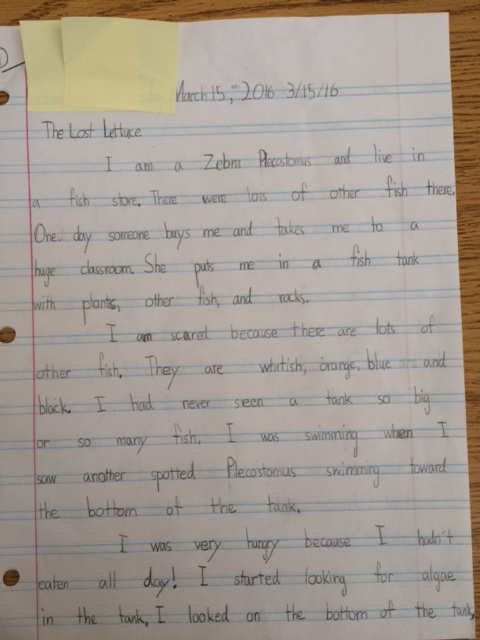 March 15, 2016 3/15/16
The Lost Lettuce
I am a Zebra Plecostomus and live in
a fish store. There were lots of other fish there.
One day someone buys me and takes me to a
huge classroom. She puts me in a fish tank
with plants, other fish, and rocks.
I am scared because there are lots of
other fish. They are whitish, orange, blue and
black. I had never seen a tank so big
or so many fish. I was swimming when I
saw another spotted Plecostomus swimming toward
the bottom of the tank.
I was very hungry because I hadn't
eaten all day! I started looking for algae
in the tank, I looked on the bottom of the tank,